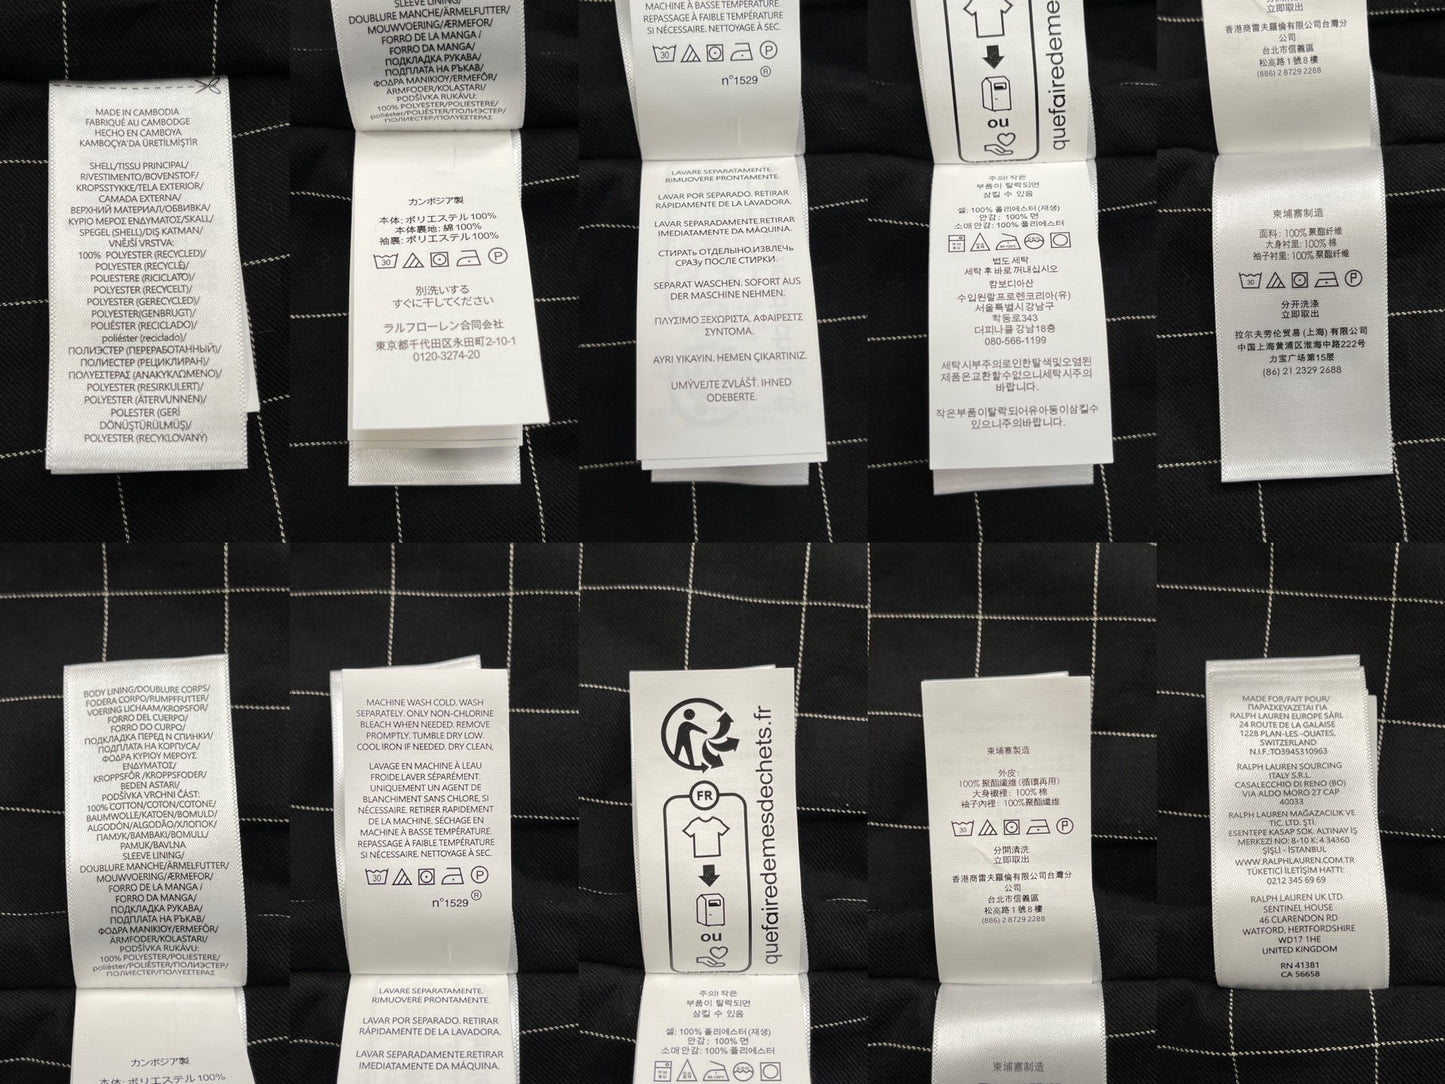 MADE IN CAMBODIA
FABRIQUÉ AU CAMBODGE
HECHO EN CAMBOYA
KAMBOÇYA'DA ÜRETİLMİŞTİR
SHELL/TISSU PRINCIPAL/
RIVESTIMENTO/BOVENSTOF/
KROPSSTYKKE/TELA EXTERIOR/
CAMADA EXTERNA/
ВЕРХНИЙ МАТЕРИАЛ/ОБВИВКА/
ΚΥΡΙΟ ΜΕΡΟΣ ΕΝΔΥΜΑΤΟΣ/SKALL/
SPEGEL (SHELL)/DIŞ KATMAN/
VNĚJŠÍ VRSTVA:
100% POLYESTER (RECYCLED)/
POLYESTER (RECYCLÉ)/
POLIESTERE (RICICLATO)/
POLYESTER (RECYCELT)/
POLYESTER (GERECYCLED)/
POLYESTER(GENBRUGT)/
POLIÉSTER (RECICLADO)/
poliéster (reciclado)/
ПОЛИЭСТЕР (ПЕРЕРАБОТАННЫЙ)/
ПОЛИЕСТЕР (РЕЦИКЛИРАН)/
ΠΟΛΥΕΣΤΕΡΑΣ (ΑΝΑΚΥΚΛΩΜΕΝΟ)/
POLYESTER (RESIRKULERT)/
POLYESTER (ÅTERVUNNEN)/
POLESTER (GERİ
DÖNÜŞTÜRÜLMÜŞ)/
POLYESTER (RECYKLOVANÝ)
SLEEVE LINING/
DOUBLURE MANCHE/ÄRMELFUTTER/
MOUWVOERING/ÆRMEFOR/
FORRO DE LA MANGA /
FORRO DA MANGA/
ПОДКЛАДКА РУКАВА/
ПОДПЛАТА НА РЪКАВ/
ΦΟΔΡΑ ΜΑΝΙΚΙΟΥ/ERMEFÔR/
ÄRMFODER/KOLASTARI/
PODŠÍVKA RUKÁVU:
100% POLYESTER/POLIESTERE/
poliéster/POLIÉSTER/ПОЛИЭСТЕР/
ПОЛИЕСТЕР/ΠΟΛΥΕΣΤΕΡΑΣ
カンボジア製
本体: ポリエステル 100%
本体裏地: 綿 100%
袖裏: ポリエステル 100%
30
P
別洗いする
すぐに干してください
ラルフローレン合同会社
東京都千代田区永田町2-10-1
0120-3274-20
MACHINE À BASSE TEMPÉRATURE.
REPASSAGE À FAIBLE TEMPÉRATURE
SI NÉCESSAIRE. NETTOYAGE À SEC.
30
P
n°1529 ®
LAVARE SEPARATAMENTE.
RIMUOVERE PRONTAMENTE.
LAVAR POR SEPARADO. RETIRAR
RÁPIDAMENTE DE LA LAVADORA.
LAVAR SEPARADAMENTE.RETIRAR
IMEDIATAMENTE DA MÁQUINA.
СТИРАТЬ ОТДЕЛЬНО.ИЗВЛЕЧЬ
СРАЗУ ПОСЛЕ СТИРКИ.
SEPARAT WASCHEN. SOFORT AUS
DER MASCHINE NEHMEN.
ΠΛΥΣΙΜΟ ΞΕΧΩΡΙΣΤΑ. ΑΦΑΙΡΕΣΤΕ
ΣΥΝΤΟΜΑ.
AYRI YIKAYIN. HEMEN ÇIKARTINIZ.
UMÝVEJTE ZVLÁŠŤ. IHNED
ODEBERTE.
ou
quefairedemesdechets
주의! 작은
부품이 탈락되면
삼킬 수 있음
셀: 100% 폴리에스터(재생)
안감 : 100% 면
소매 안감: 100% 폴리에스터
별도 세탁
세탁 후 바로 꺼내십시오
캄보디아산
수입원랄프로렌코리아(유)
서울특별시 강남구
학동로343
더피나클 강남18층
080-566-1199
세탁시부주의로인한탈색및오염된
제품은교환할수없으니세탁시주의
바랍니다.
작은부품이탈락되어유아동이삼킬수
있으니주의바랍니다.
立即取出
香港商雷夫羅倫有限公司台灣分
公司
台北市信義區
松高路 1 號 8 樓
(886) 2 8729 2288
柬埔寨制造
面料: 100% 聚酯纤维
大身衬里: 100% 棉
袖子衬里: 100% 聚酯纤维
30
P
分开洗涤
立即取出
拉尔夫劳伦贸易 (上海) 有限公司
中国上海黄浦区淮海中路222号
力宝广场第15层
(86) 21 2329 2688
BODY LINING/DOUBLURE CORPS/
FODERA CORPO/RUMPFFUTTER/
VOERING LICHAAM/KROPSFOR/
FORRO DEL CUERPO/
FORRO DO CURPO/
ПОДКЛАДКА ПЕРЕД Н СПИНКИ/
ПОДПЛАТА НА КОРПУСА/
ΦΟΔΡΑ ΚΥΡΙΟΥ ΜΕΡΟΥΣ
ΕΝΔΥΜΑΤΟΣ/
KROPPSFÔR/KROPPSFODER/
BEDEN ASTARI/
PODŠÍVKA VRCHNI ČÁST:
100% COTTON/COTON/COTONE/
BAUMWOLLE/KATOEN/BOMULD/
ALGODÓN/ALGODÃO/ХЛОПОК/
ПАМУК/ΒΑΜΒΑΚΙ/BOMULL/
PAMUK/BAVLNA
SLEEVE LINING/
DOUBLURE MANCHE/ÄRMELFUTTER/
MOUWVOERING/ÆRMEFOR/
FORRO DE LA MANGA /
FORRO DA MANGA/
ПОДКЛАДКА РУКАВА/
ПОДПЛАТА НА РЪКАВ/
ΦΟΔΡΑ ΜΑΝΙΚΙΟΥ/ERMEFÔR/
ÄRMFODER/KOLASTARI/
PODŠÍVKA RUKÁVU:
100% POLYESTER/POLIESTERE/
poliéster/POLIÉSTER/ПОЛИЭСТЕР/
ПОЛИЕСТЕР/ΠΟΛΥΕΣΤΕΡΑΣ
カンボジア製
本体: ポリエステル 100%
MACHINE WASH COLD. WASH
SEPARATELY. ONLY NON-CHLORINE
BLEACH WHEN NEEDED. REMOVE
PROMPTLY. TUMBLE DRY LOW.
COOL IRON IF NEEDED. DRY CLEAN.
LAVAGE EN MACHINE À L'EAU
FROIDE.LAVER SÉPARÉMENT.
UNIQUEMENT UN AGENT DE
BLANCHIMENT SANS CHLORE, SI
NÉCESSAIRE. RETIRER RAPIDEMENT
DE LA MACHINE. SÉCHAGE EN
MACHINE À BASSE TEMPÉRATURE.
REPASSAGE À FAIBLE TEMPÉRATURE
SI NÉCESSAIRE. NETTOYAGE À SEC.
30
P
n°1529 ®
LAVARE SEPARATAMENTE.
RIMUOVERE PRONTAMENTE.
LAVAR POR SEPARADO. RETIRAR
RÁPIDAMENTE DE LA LAVADORA.
LAVAR SEPARADAMENTE.RETIRAR
IMEDIATAMENTE DA MÁQUINA.
FR
ou
quefairedemesdechets.fr
주의! 작은
부품이 탈락되면
삼킬 수 있음
셀: 100% 폴리에스터(재생)
안감 : 100% 면
소매 안감: 100% 폴리에스터
柬埔寨製造
外皮:
100% 聚酯纖維 (循環再用)
大身襯裡: 100% 棉
袖子內裡: 100%聚酯纖維
30
P
分開清洗
立即取出
香港商雷夫羅倫有限公司台灣分
公司
台北市信義區
松高路 1 號 8 樓
(886) 2 8729 2288
柬埔寨制造
MADE FOR/FAIT POUR/
ΠΑΡΑΣΚΕΥΑΖΕΤΑΙ ΓΙΑ
RALPH LAUREN EUROPE SÀRL
24 ROUTE DE LA GALAISE
1228 PLAN-LES -OUATES,
SWITZERLAND
N.I.F.:TO3945310963
RALPH LAUREN SOURCING
ITALY S.R.L.
CASALECCHIO DI RENO (BO)
VIA ALDO MORO 27 CAP
40033
RALPH LAUREN MAĞAZACILIK VE
TIC. LTD. ŞTİ.
ESENTEPE KASAP SOK. ALTINAY İŞ
MERKEZI NO: 8-10 K: 4 34360
ŞİŞLİ - İSTANBUL
WWW.RALPHLAUREN.COM.TR
TÜKETICI İLETIŞIM HATTI:
0212 345 69 69
RALPH LAUREN UK LTD.
SENTINEL HOUSE
46 CLARENDON RD
WATFORD, HERTFORDSHIRE
WD17 1HE
UNITED KINGDOM
RN 41381
CA 56658